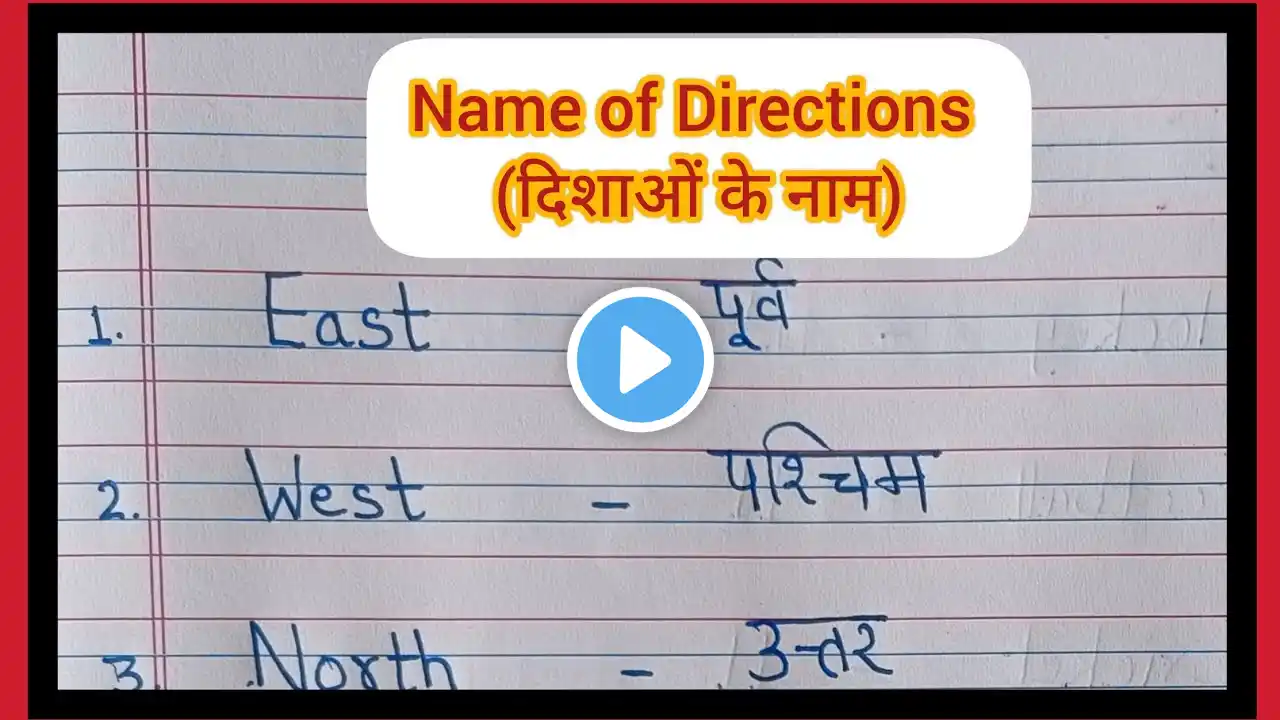 Name of Directions
(दिशाओं के नाम)
1. East पूर्व
2. West - पश्चिम
3. North - उत्तर